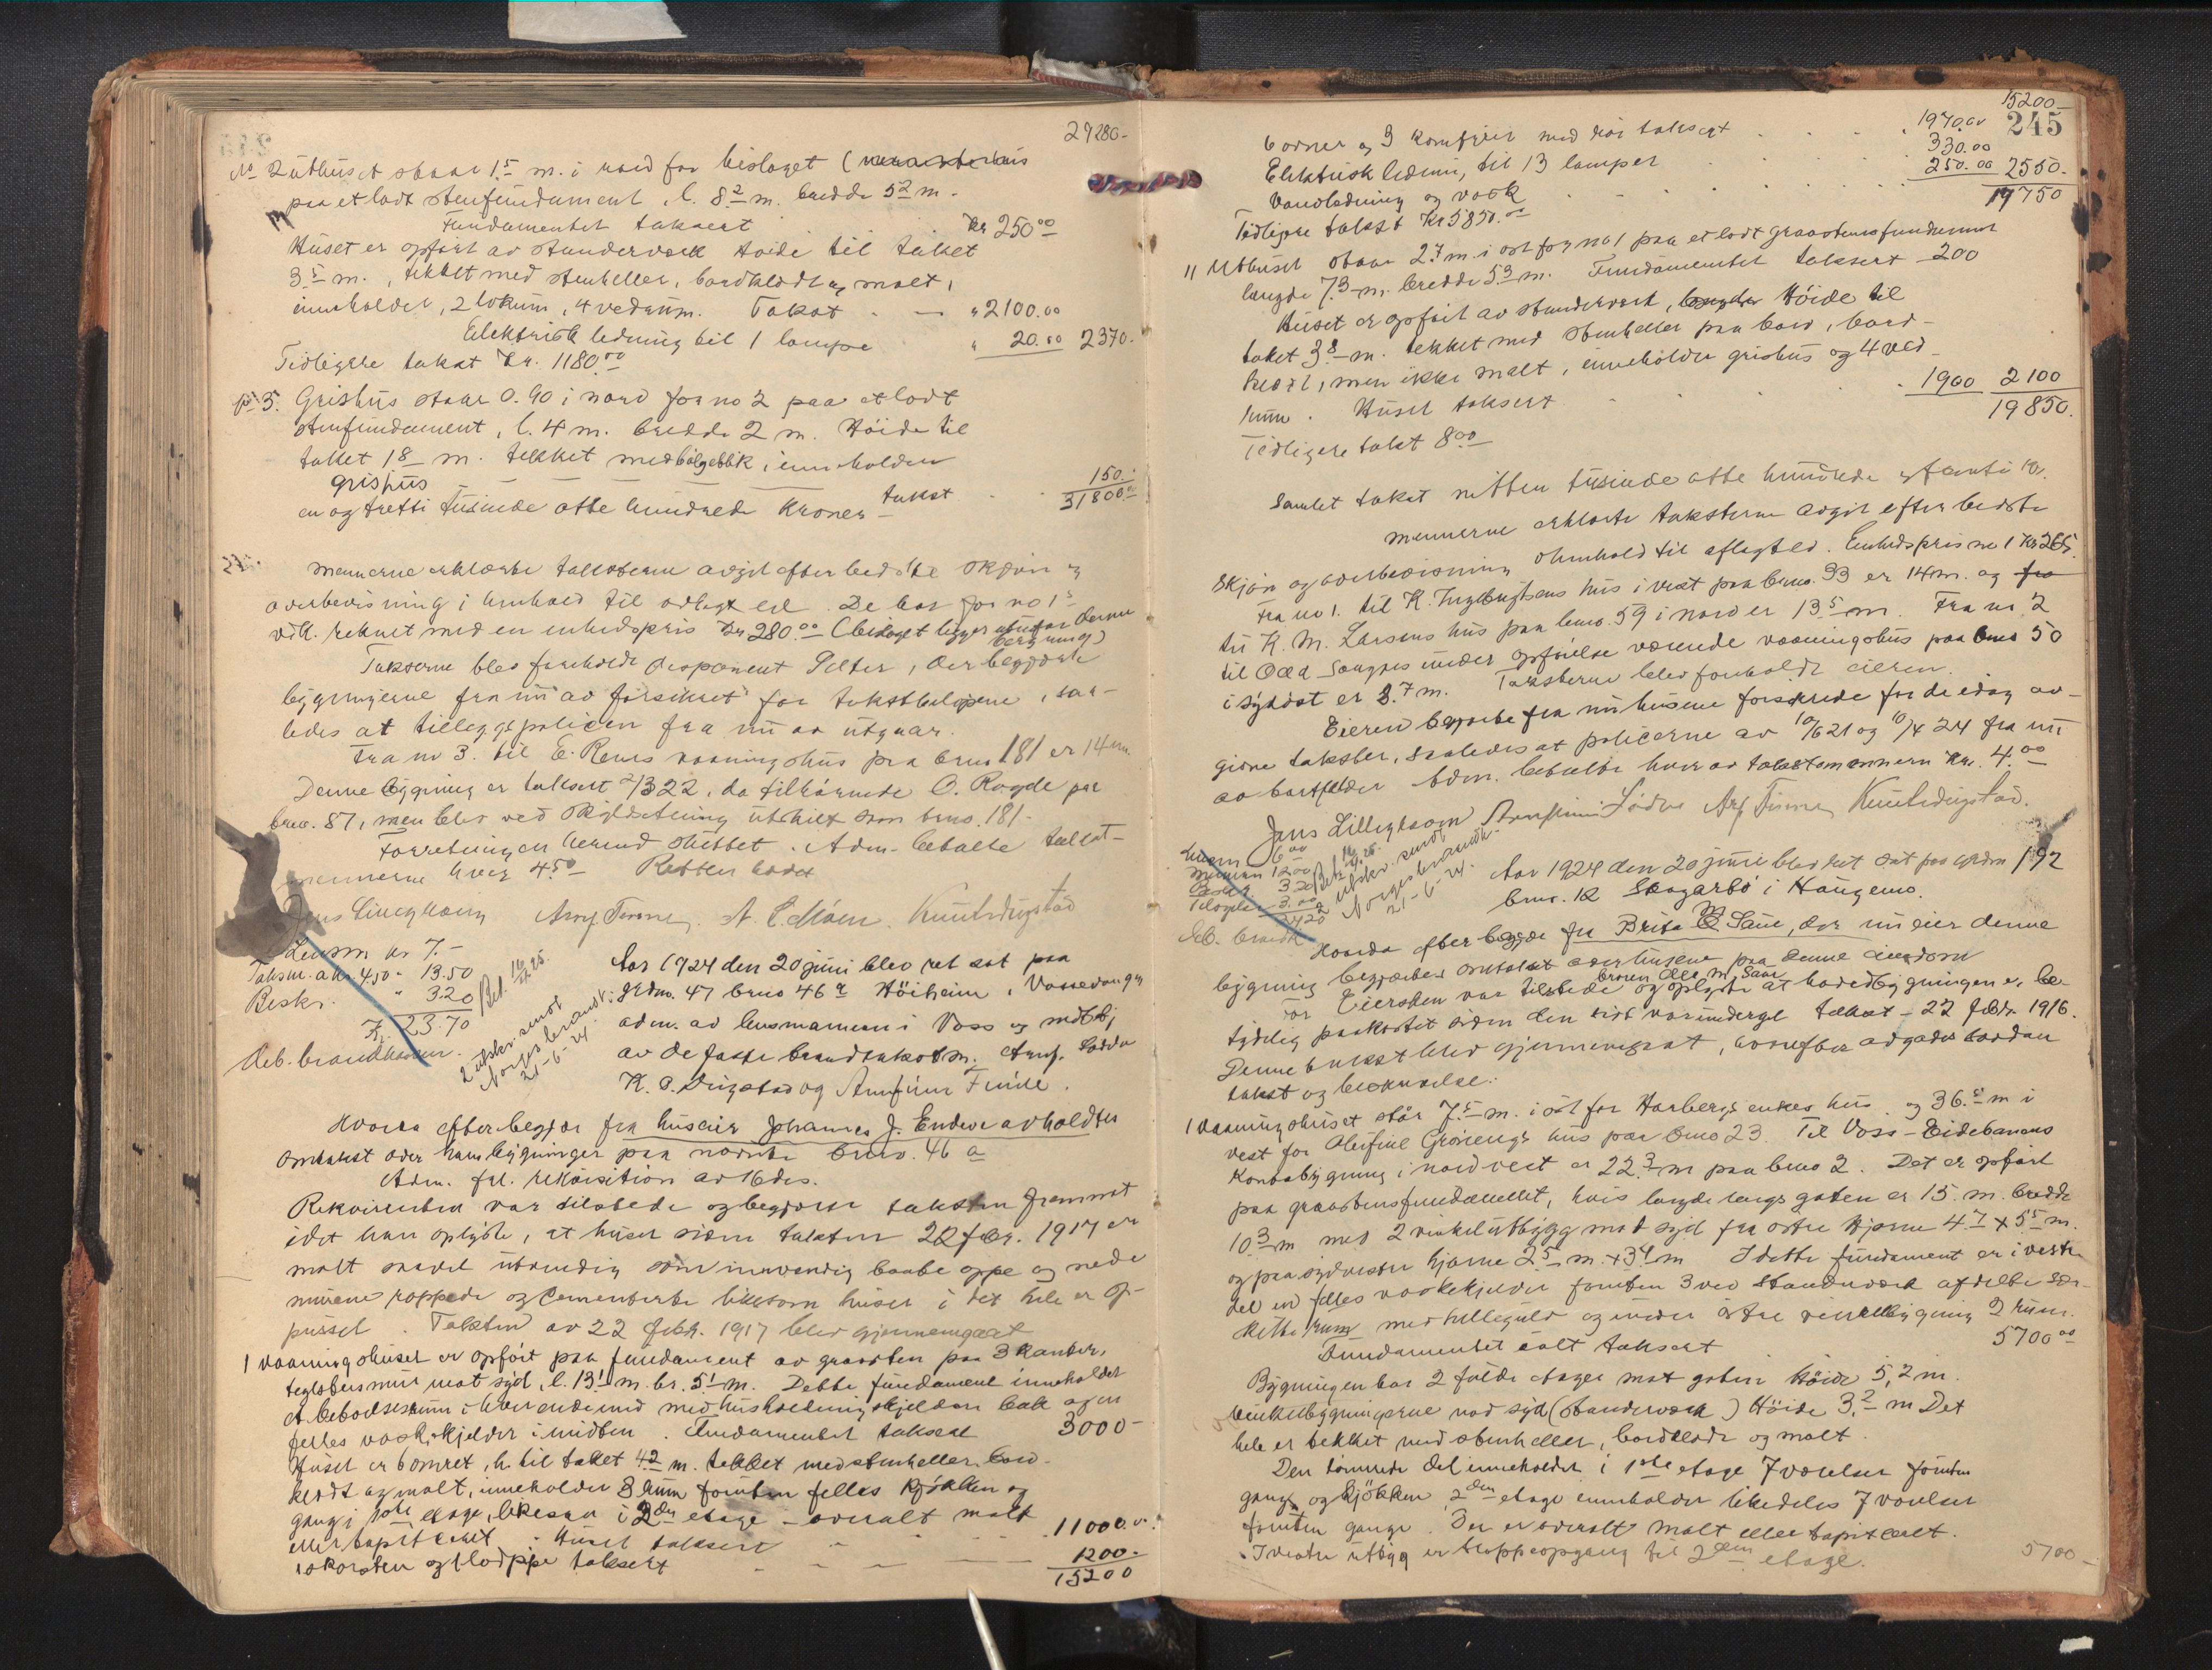 29280-
No 2 uthuset staar 1.5 m. i nord for bislaget
paa et lodt stenfundament, l. 8.2 m. bredde 5.2 m.
Fundamentet taksert Kr 250.00
Huset er opført av standerverk Høide til taket
3.5 m., tekket med stenheller, bordklædt og malt,
inneholder, 2 lokum, 4 vedrum. Takst " 2100.00
Elektrisk ledning til 1 lampe " 20.00 2370.
Tidligere takst Kr. 1180.00
No 3. Grishus staar 0.90 i nord for no 2 paa et lodt
stenfundament, l. 4 m. bredde 2 m. Høide til
taket 1.8 m. tekket med bølgeblik, inneholder
grishus takst 150.-
en og tretti tusinde otte hundrede Kroner 31800.00
Mennerne erklærte taksterne avgit efter bedste skjøn og
overbevisning i henhold til avlagt ed. De har for no 1's
vedk. reknet med en enhedspris Kr 280.00 (bislaget ligger utenfor denne
beregning)
Taksterne blev foreholdt disponent Pelter, der begjærte
bygningerne fra nu av forsikret for takstbeløpene, saa-
ledes at tilleggspolicen fra nu av utgaar.
Fra no 3. til E. Rems vaaningshus paa bruno 181 er 14 m.
Denne bygning er taksert 2/3 22, da tilhørende O. Rogde paa
bruno. 87, men blev ved skyldsetning utskilt som bruno. 181.
Forretningen hermed sluttet. Adm. betalte takst-
mennerne hver 4.50 Retten hævet
Jens Lilleghaug Arnf. Finne. A. E. Moen. Knut Dugstad
Lensm kr 7.-
Taksm. a kr 4.50 - 13.50
Beskr. " 3.20
Kr. 23.70
Deb. brandkassen.
2 utskr. sendt
Norges brandk.
21-6-24.
Aar 1924 den 20 juni blev ret sat paa
grdno. 47 bruno 46 a Høiheim i Vossevangen
adm. av lensmannen i Voss og medbetj
av de faste brandtakstm. Arnf. Lødve
K. O. Dugstad og Arnfinn Finne.
Hvorda efter begjær fra huseier Johannes J. Endeve avholdtes
omtakst over hans bygninger paa nævnte bruno. 46 a
Adm. frl. rekvisition av 16 ds.
Rekvirenten var tilstede og begjærte taksten fremmet
idet han oplyste, at huset siden taksten 22 febr. 1917 er
malt saavel utvendig som innvendig baade oppe og nede
murene rappede og cementerte likesom huset i det hele er op-
pusset. Taksten av 22 febr. 1917 blev gjennemgaat
1 vaaningshuset er opført paa fundament av graasten paa 3 kanter,
teglstensmur mot syd, l. 13.1 m. br. 5.1 m. Dette fundament inneholder
et beboelsesrum i hver ende med husholdningskjelder bak og en
felles vaskekjelder i midten. Fundamentet taksert 3000-
Huset er tømret, h. til taket 4.2 m. tekket med stenheller, bord-
klædt og malt, inneholder 8 rum foruten felles kjøkken og
gang i 1ste etage, likesaa i 2den etage - overalt malt
eller tapitceret. Huset taksert 11000.00
1 skorsten og 1 lodpipe taksert 1200.-
15200
15200-
245
6 ovner og 3 komfyrer med rør taksert 1970.00
Elektrisk ledning til 13 lamper 330.00
Vandledning og vask 250.00 2550.
Tidligere takst Kr 5850.00 17750
11 Uthuset staar 2.7 m. i øst for no 1 paa et lodt graastensfundament
længde 7.3 m. bredde 5.3 m. Fundamentet taksert 200
Huset er opført av standerverk, Høide til
taket 3.8 m. tekket med stenheller paa bord, bord-
klædt, men ikke malt, inneholder grishus og 4 ved-
rum. Huset taksert 1900 2100
19850.
Tidligere takst 800
Samlet takst nitten tusinde otte hundrede og femti kr.
Mennerne erklærte taksterne avgit efter bedste
skjøn og overbevisning i henhold til aflagt ed. Enhedspris no 1 Kr 265.
Fra no 1. til K. Ingebrigtsens hus i vest paa bruno. 33 er 14 m. og
til K. M. Larsens hus paa bruno. 59 i nord er 13.5 m. Fra no 2
til Odd Saugnes under opførelse værende vaaningshus paa bruno 50
i sydøst er 8.7 m. Taksterne blev foreholdt eieren.
Eieren begjærte fra nu husene forsikrede for de idag av-
givne takster, saaledes at policerne av 10/6 21 og 10/4 24 fra nu
av bortfalder Adm. betalte hver av takstmennerne Kr. 4.00
Jens Lilleghaug Arnfinn Lødve Arnf Finne Knut Dugstad.
Lensm 6.00
Mennene 12.00
Beskr 3.20
24.20
Deb. brandk
2 utskr. sendt
Norges brandk-
21-6-24.
Aar 1924 den 20 juni blev ret sat paa grdno 192
bruno. 12 Skogarbø i Haugemo.
Hvorda efter begjær fra Brita M Saue, der nu eier denne
bygning begjærtes omtakst over husene paa denne eiendom
For Eiersken var tilstede broren Olle M. Saue og oplyste at hovedbygningen er be-
tydelig paakostet siden den sist var undergit takst - 22 febr. 1916.
Denne takst blev gjennemgaat, hvorefter avgaves saadan
takst og beskrivelse:
1 vaaningshuset står 7.5 m. i øst for Horbergs enkes hus. og 36.5 m i
vest for Oleifine Grønengs hus paa bruno 23. Til Voss-Eidebanens
Kontorbygning i nordvest er 22.3 m paa bruno 2. Det er opført
paa graastensfundamentet, hvis længde langs gaten er 15. m. bredde
10.3 m med 2 vinkelutbygg mot syd fra østre Hjørne 4.7 x 5.5 m.
og paa sydvestre hjørne 2.5 m. x 3.4 m I dette fundament er i vestre
del en felles vaskekjelder foruten 3 ved standerverk afdelte sær-
skilte rum med hellegulv og under østre vinkelbygning 2 rum.
Fundamentet ialt taksert 5700.00
Bygningen har 2 fulde etager mot gaten Høide 5,2 m.
Vinkelbygningerne mod syd (standerverk) Høide 3.2 m Det
hele er tekket med stenheller, bordklædt og malt.
Den tømrede del inneholder i 1ste etage 7 værelser foruten
gang og kjøkken, 2den etage inneholder likedeles 7 værelser
foruten gange. Der er overalt malt eller tapitceret.
I vestre utbygg er trappeopgang til 2den etage. 5700-